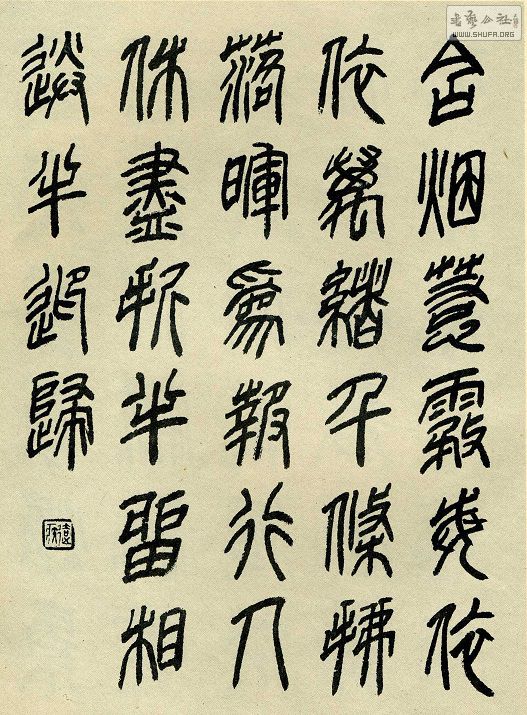 含烟惹霧每依
依萬緒千條拂
落暉爲報行人
休盡折半留相
送半迎歸
书艺公社
WWW.SHUFA.ORG